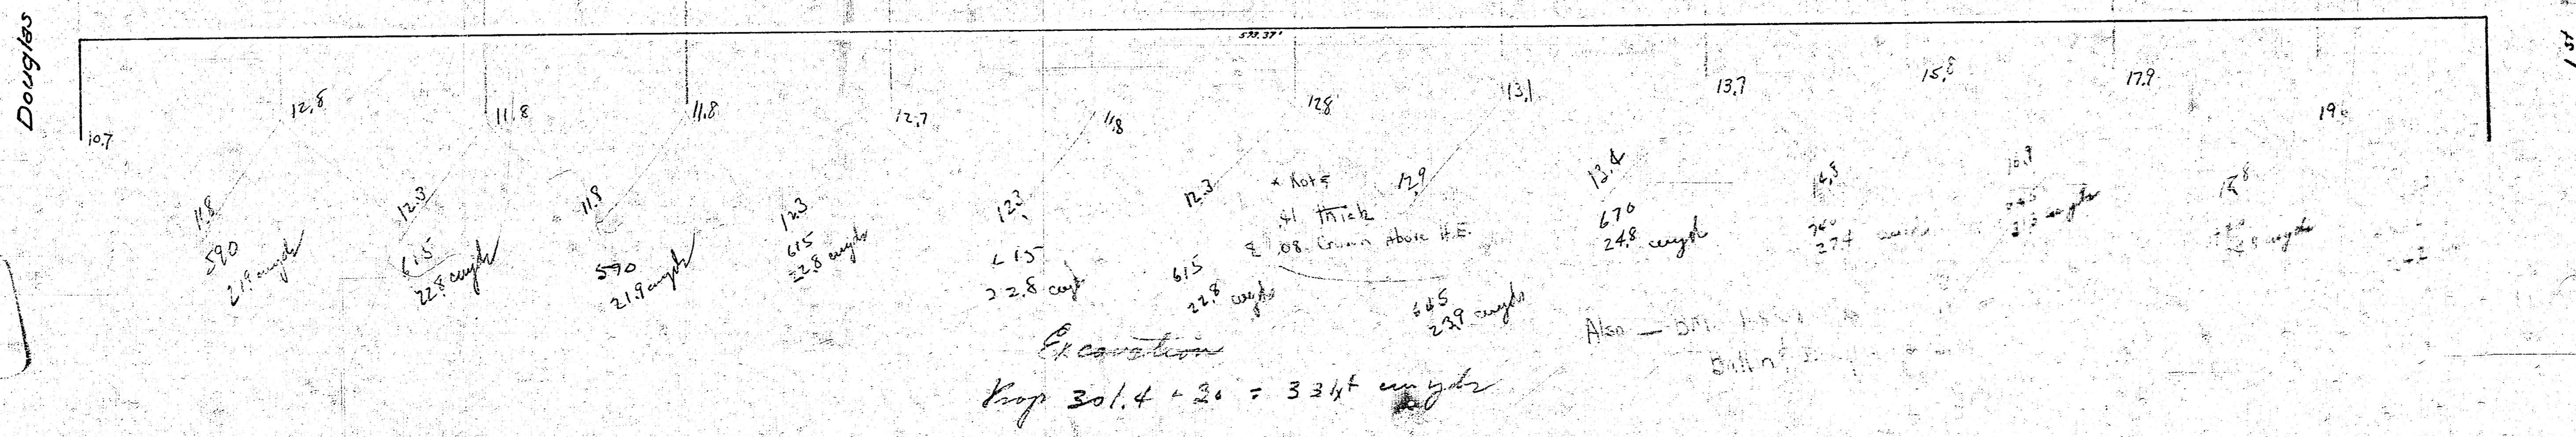 Douglas
1st
593.37'
10.7
12.8
11.8
11.8
12.7
11.8
12.8
13.1
13.7
15.8
17.9
19.
11.8
590
21.9 cuyds
12.3
615
22.8 cuyds
11.8
590
21.9 cuyds
12.3
615
22.8 cuyds
12.3
615
22.8 cuyd
12.3
615
22.8 cuyds
* Note
.41 Thick
& .08 Crown Above H.E.
12.9
645
23.9 cuyds
13.4
670
24.8 cuyds
14.8
740
27.4
cuyds
cuyds
Also —
Excavation
Prop 301.4 + 30 = 331.4 cu yds